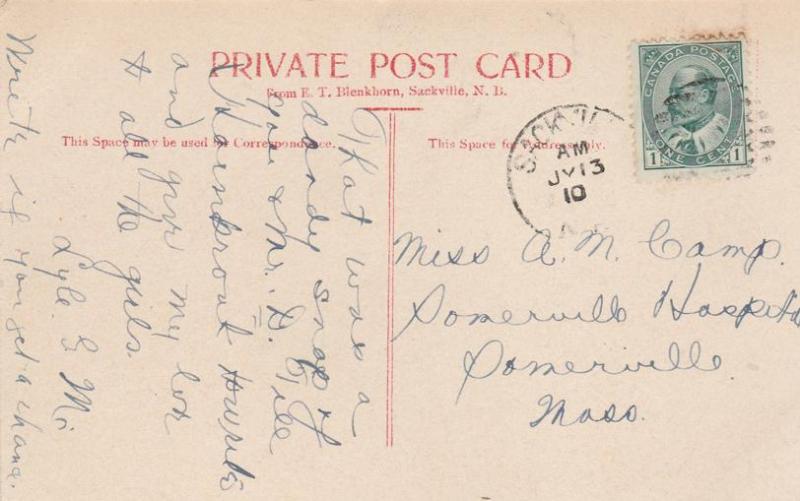 PRIVATE POST CARD
From E. T. Blenkhorn, Sackville, N. B.
This Space may be used for Correspondence.
This Space for Address only.
CANADA POSTAGE
1 ONE CENT 1
SACKVIL
AM
JY 13
10
Miss A. M. Camp.
Somerville Hospital
Somerville.
Mass.
That was a
dandy snap of
you & Mr. D.
and give my lov
to all the girls.
Lyle. G. Mc
Write if you get a chanc.